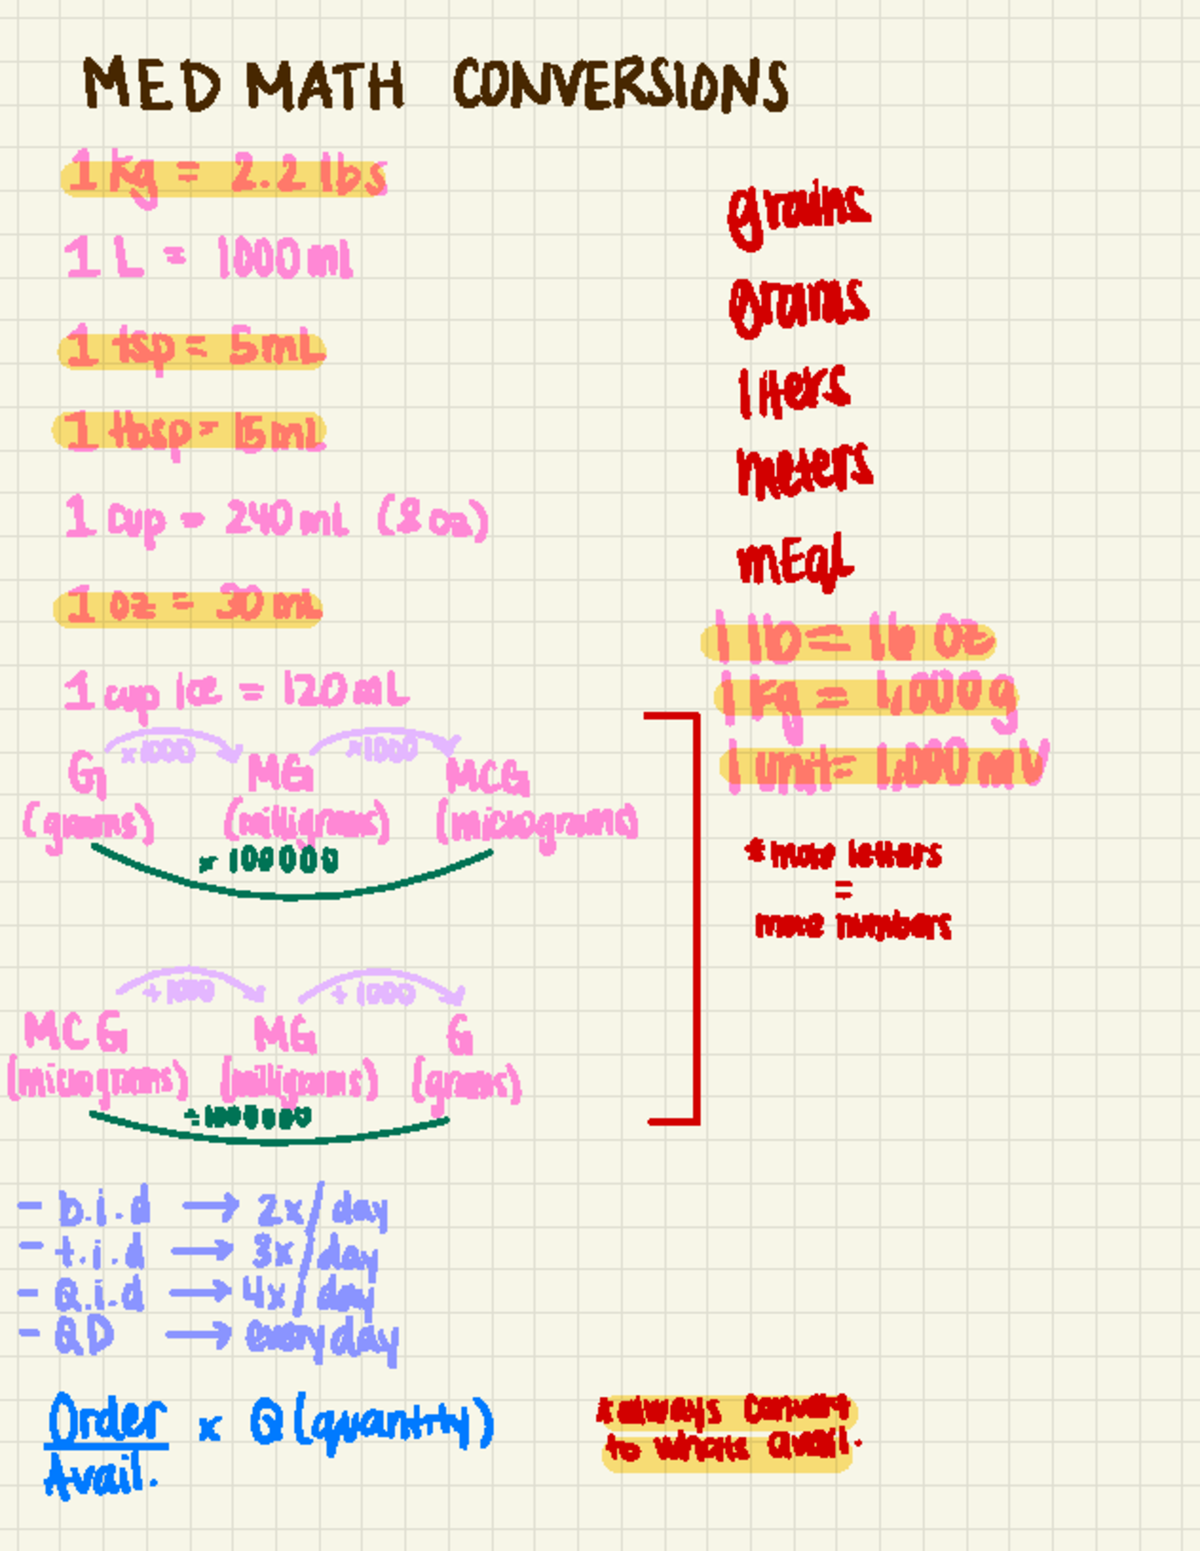 MED MATH CONVERSIONS
1 kg = 2.2 lbs
1 L = 1000 mL
1 tsp = 5mL
1 tbsp = 15mL
1 cup = 240 mL (8 oz)
1 oz = 30 mL
1 cup ice = 120 mL
grains
grams
liters
meters
mEqL
1 lb = 16 oz
1 kg = 1,000 g
1 unit = 1,000 mU
x1000 x1000
G MG MCG
(grams) (milligrams) (micrograms)
x 100000
* more letters
=
more numbers
÷1000 ÷1000
MCG MG G
(micrograms) (milligrams) (grams)
÷1000000
- b.i.d → 2x/day
- t.i.d → 3x/day
- Q.i.d → 4x/day
- QD → everyday
Order x Q (quantity)
Avail.
*always convert
to whats avail.